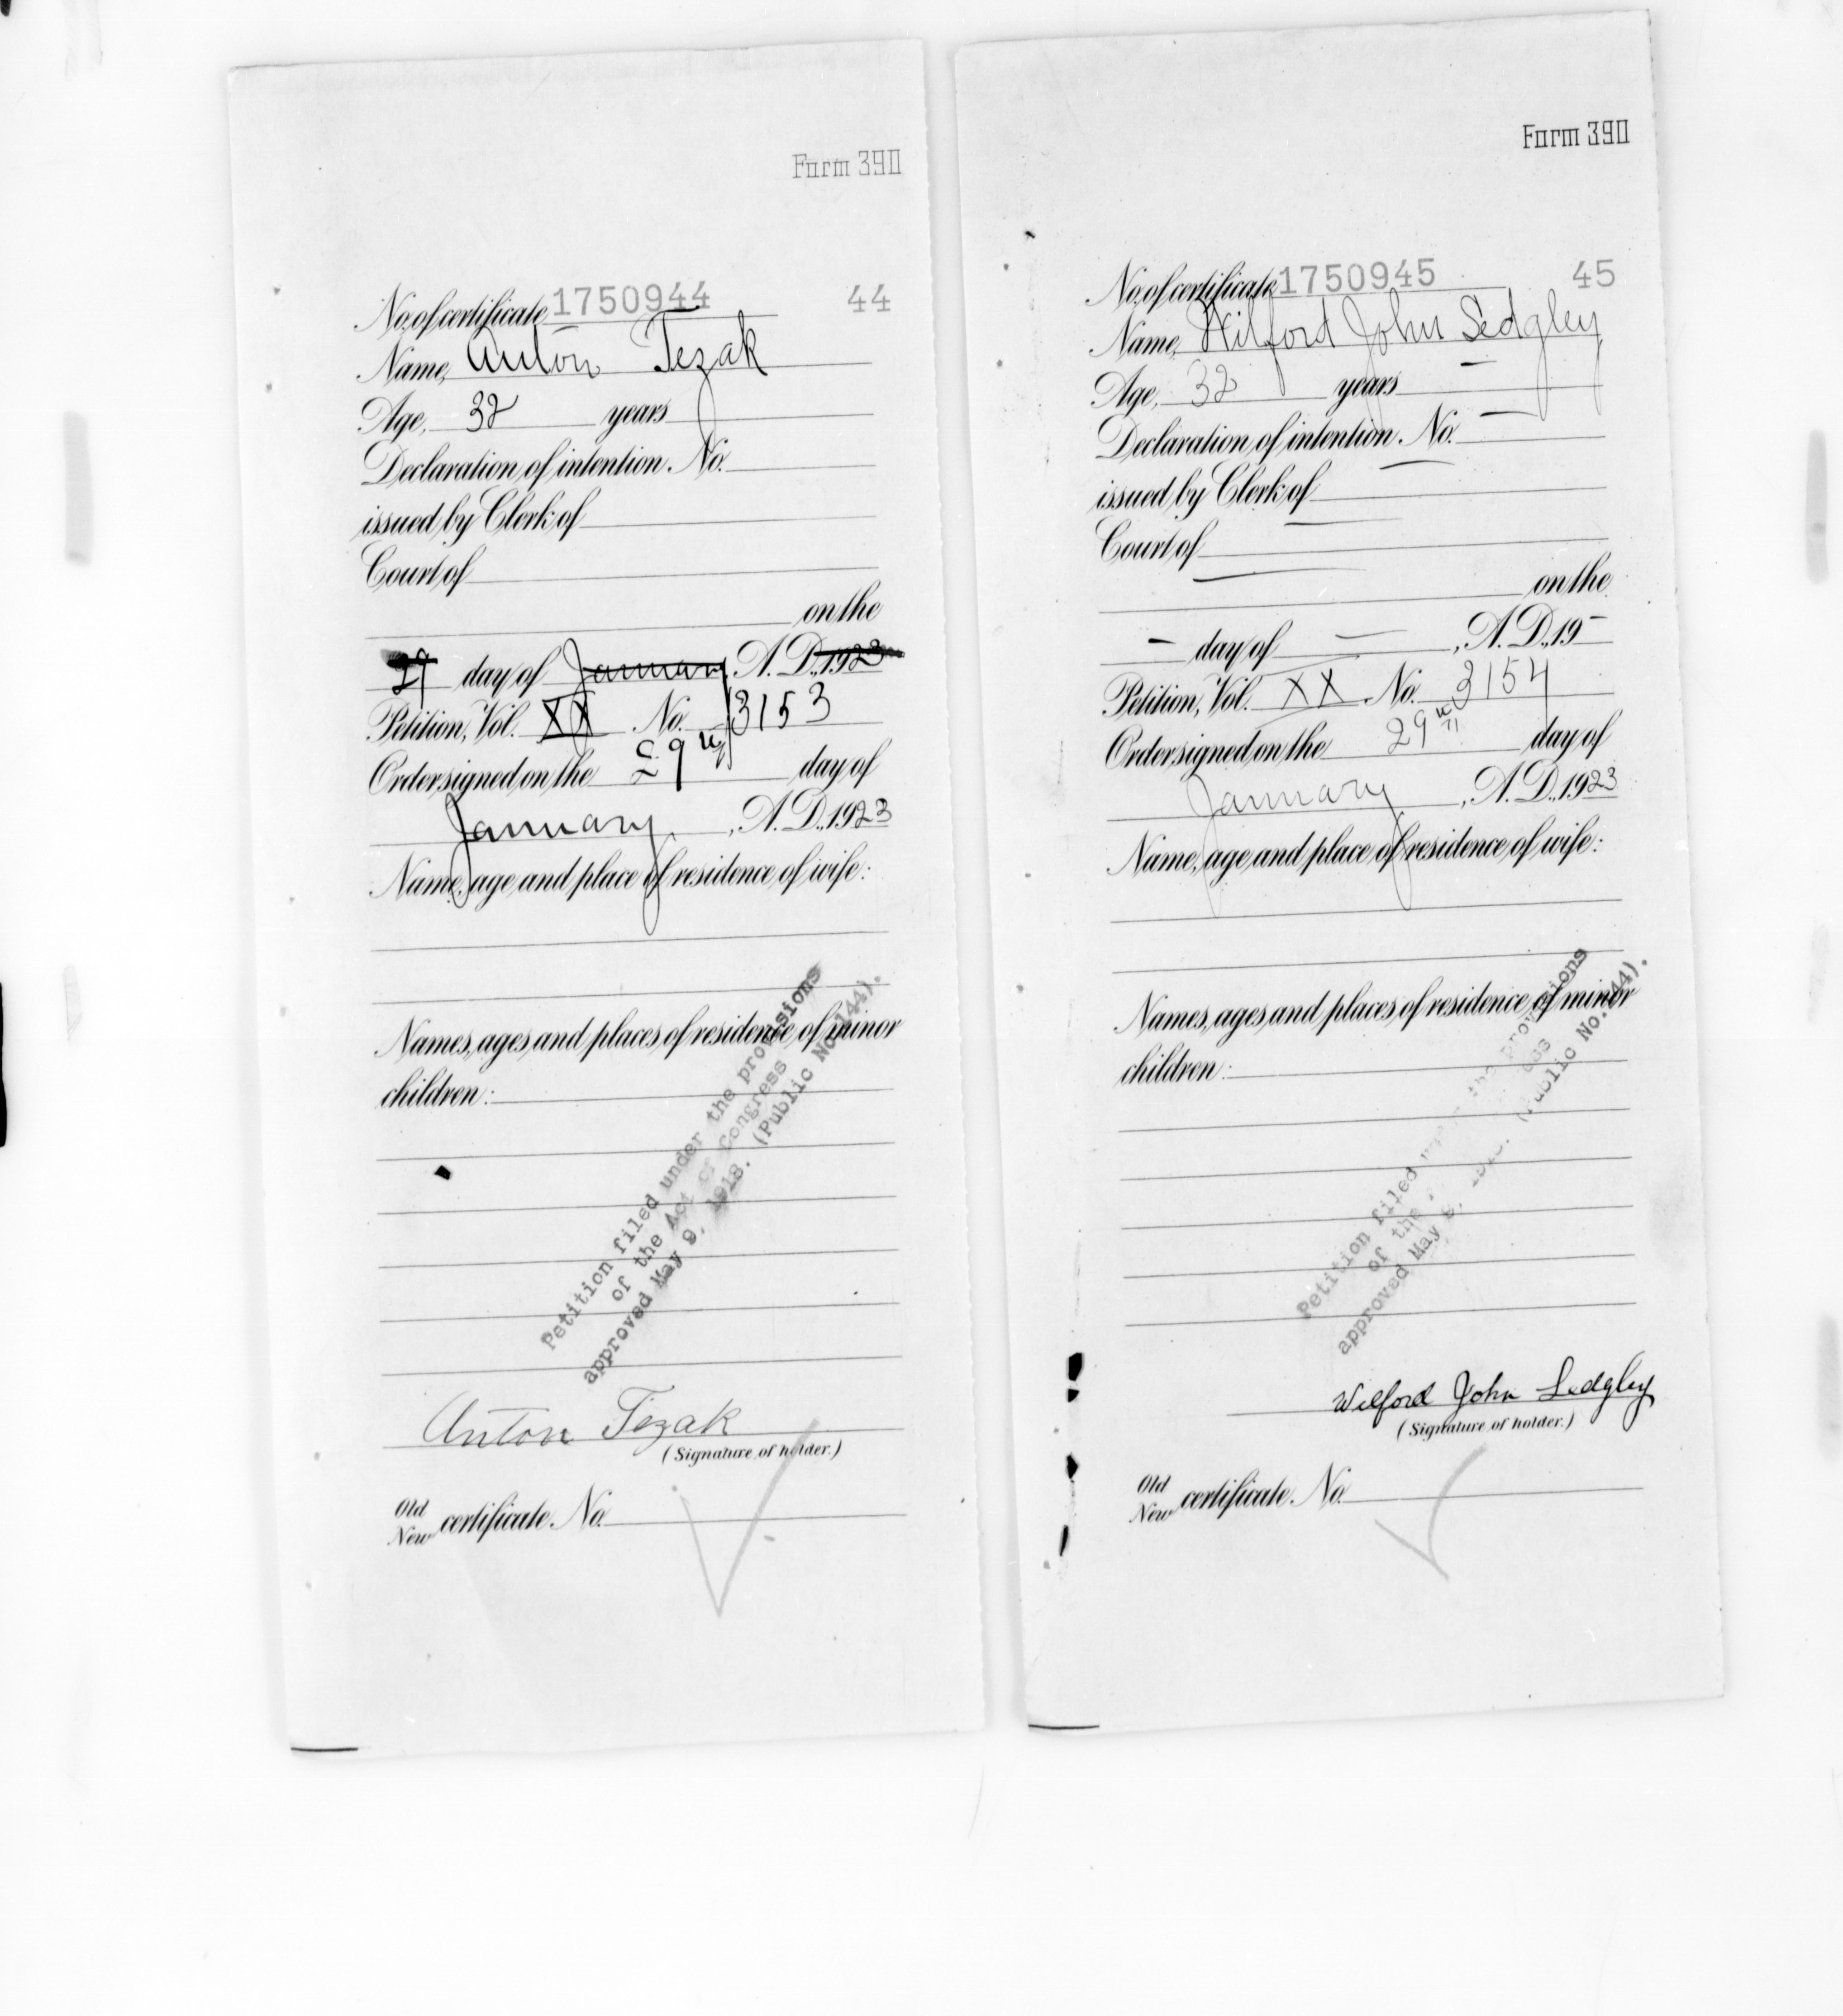 Form 390
No. of certificate 1750944 44
Name, Anton Tezak
Age, 32 years
Declaration of intention No.
issued by Clerk of
Court of
on the
29 day of January, A. D. 1923
Petition, Vol. XX No. 3153
Order signed on the 29th day of
January, A. D., 1923
Name, age and place of residence of wife:
Names, ages and places of residence of minor
children:
Petition filed under the provisions
of the Act of Congress
approved May 9, 1918. (Public No. 144).
Anton Tezak
(Signature of holder.)
Old
New certificate No.
Form 390
No. of certificate 1750945 45
Name, Wilford John Sedgley
Age, 32 years —
Declaration of intention No. —
issued by Clerk of —
Court of —
— on the
— day of —, A. D., 19—
Petition, Vol. XX No. 3154
Order signed on the 29th day of
January, A. D., 1923
Name, age and place of residence of wife:
Names, ages and places of residence of minor
children:
Petition filed the provisions
of the
approved May (Public No. 144).
Wilford John Sedgley
(Signature of holder.)
Old
New certificate No.